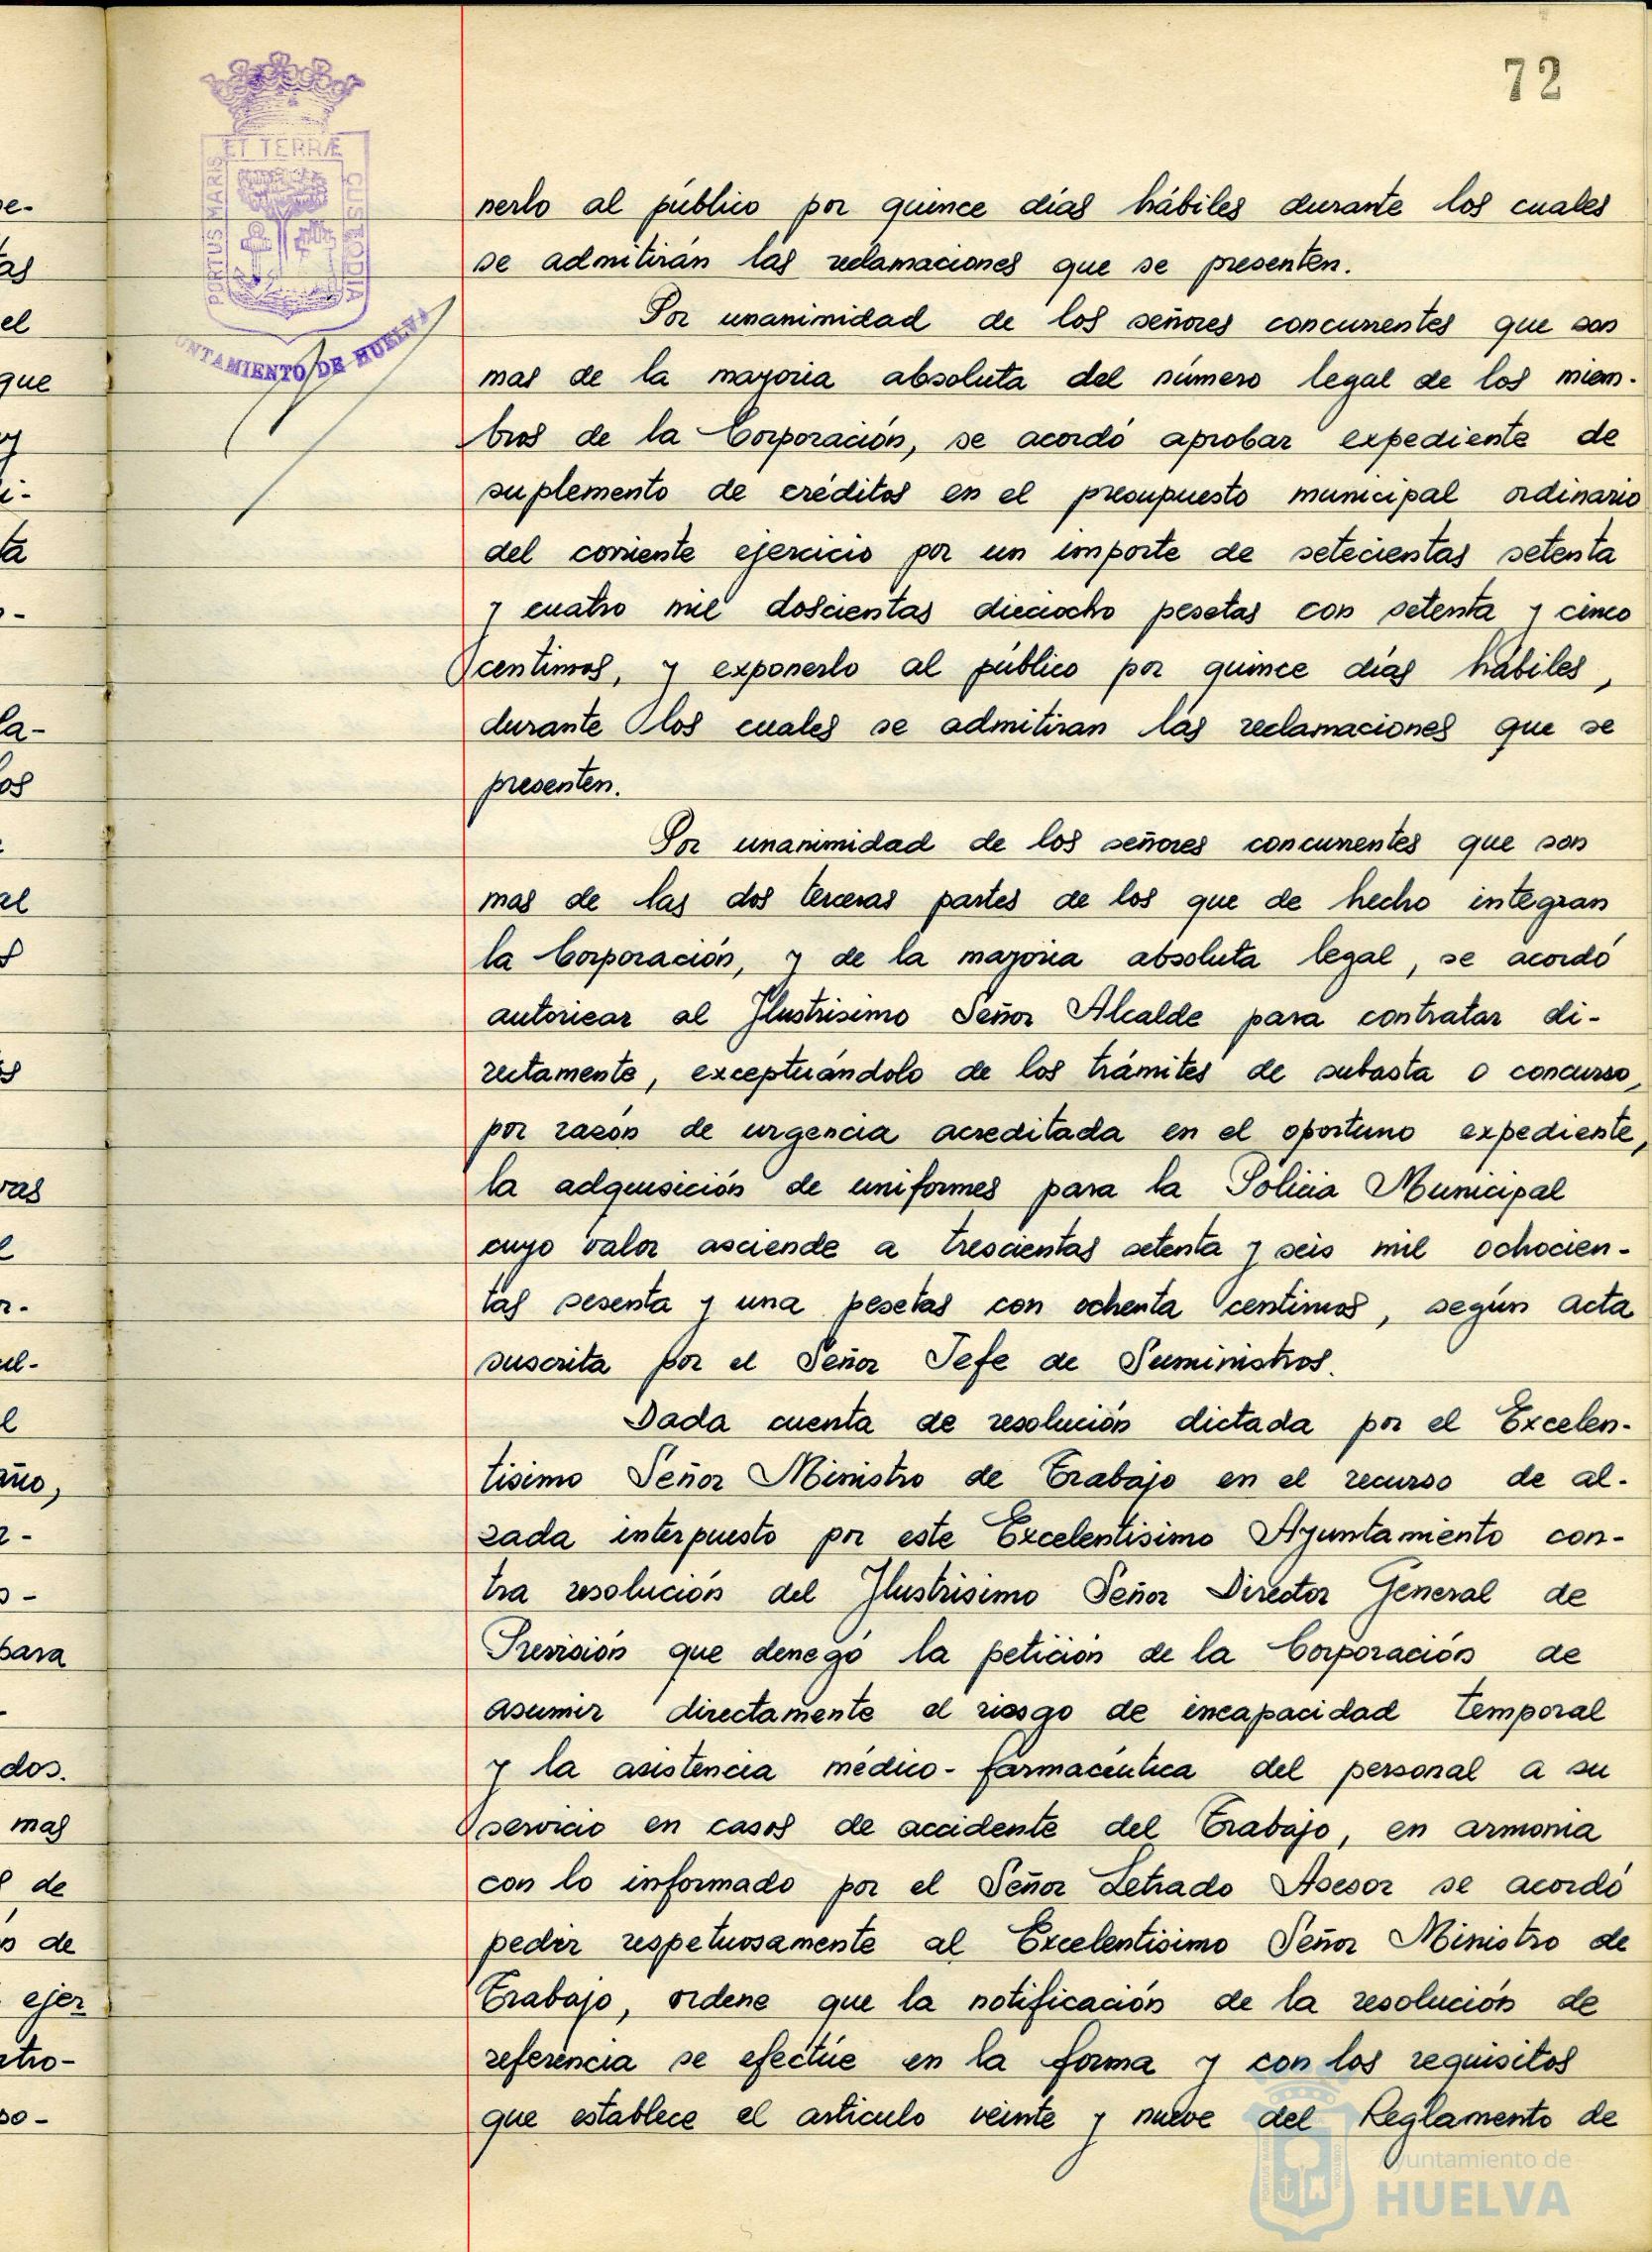 72
ET TERRÆ
PORTUS MARIS
CUSTODIA
UNTAMIENTO DE HUELVA
nerlo al público por quince días hábiles durante los cuales
se admitirán las reclamaciones que se presenten.
Por unanimidad de los señores concurrentes que son
mas de la mayoria absoluta del número legal de los miem-
bros de la Corporación, se acordó aprobar expediente de
suplemento de créditos en el presupuesto municipal ordinario
del corriente ejercicio por un importe de setecientas setenta
y cuatro mil doscientas dieciocho pesetas con setenta y cinco
centimos, y exponerlo al público por quince días hábiles,
durante los cuales se admitiran las reclamaciones que se
presenten.
Por unanimidad de los señores concurrentes que son
mas de las dos terceras partes de los que de hecho integran
la Corporación, y de la mayoria absoluta legal, se acordó
autorizar al Ilustrisimo Señor Alcalde para contratar di-
rectamente, exceptuándolo de los trámites de subasta o concurso,
por razón de urgencia acreditada en el oportuno expediente,
la adquisición de uniformes para la Policia Municipal
cuyo valor asciende a trescientas setenta y seis mil ochocien-
tas sesenta y una pesetas con ochenta centimos, según acta
suscrita por el Señor Jefe de Suministros.
Dada cuenta de resolución dictada por el Excelen-
tisimo Señor Ministro de Trabajo en el recurso de al-
zada interpuesto por este Excelentisimo Ayuntamiento con-
tra resolución del Ilustrisimo Señor Director General de
Previsión que denegó la petición de la Corporación de
asumir directamente el riesgo de incapacidad temporal
y la asistencia médico-farmacéutica del personal a su
servicio en casos de accidente del Trabajo, en armonia
con lo informado por el Señor Letrado Asesor se acordó
pedir respetuosamente al Excelentisimo Señor Ministro de
Trabajo, ordene que la notificación de la resolución de
referencia se efectúe en la forma y con los requisitos
que establece el articulo veinte y nueve del Reglamento de
Ayuntamiento de
HUELVA